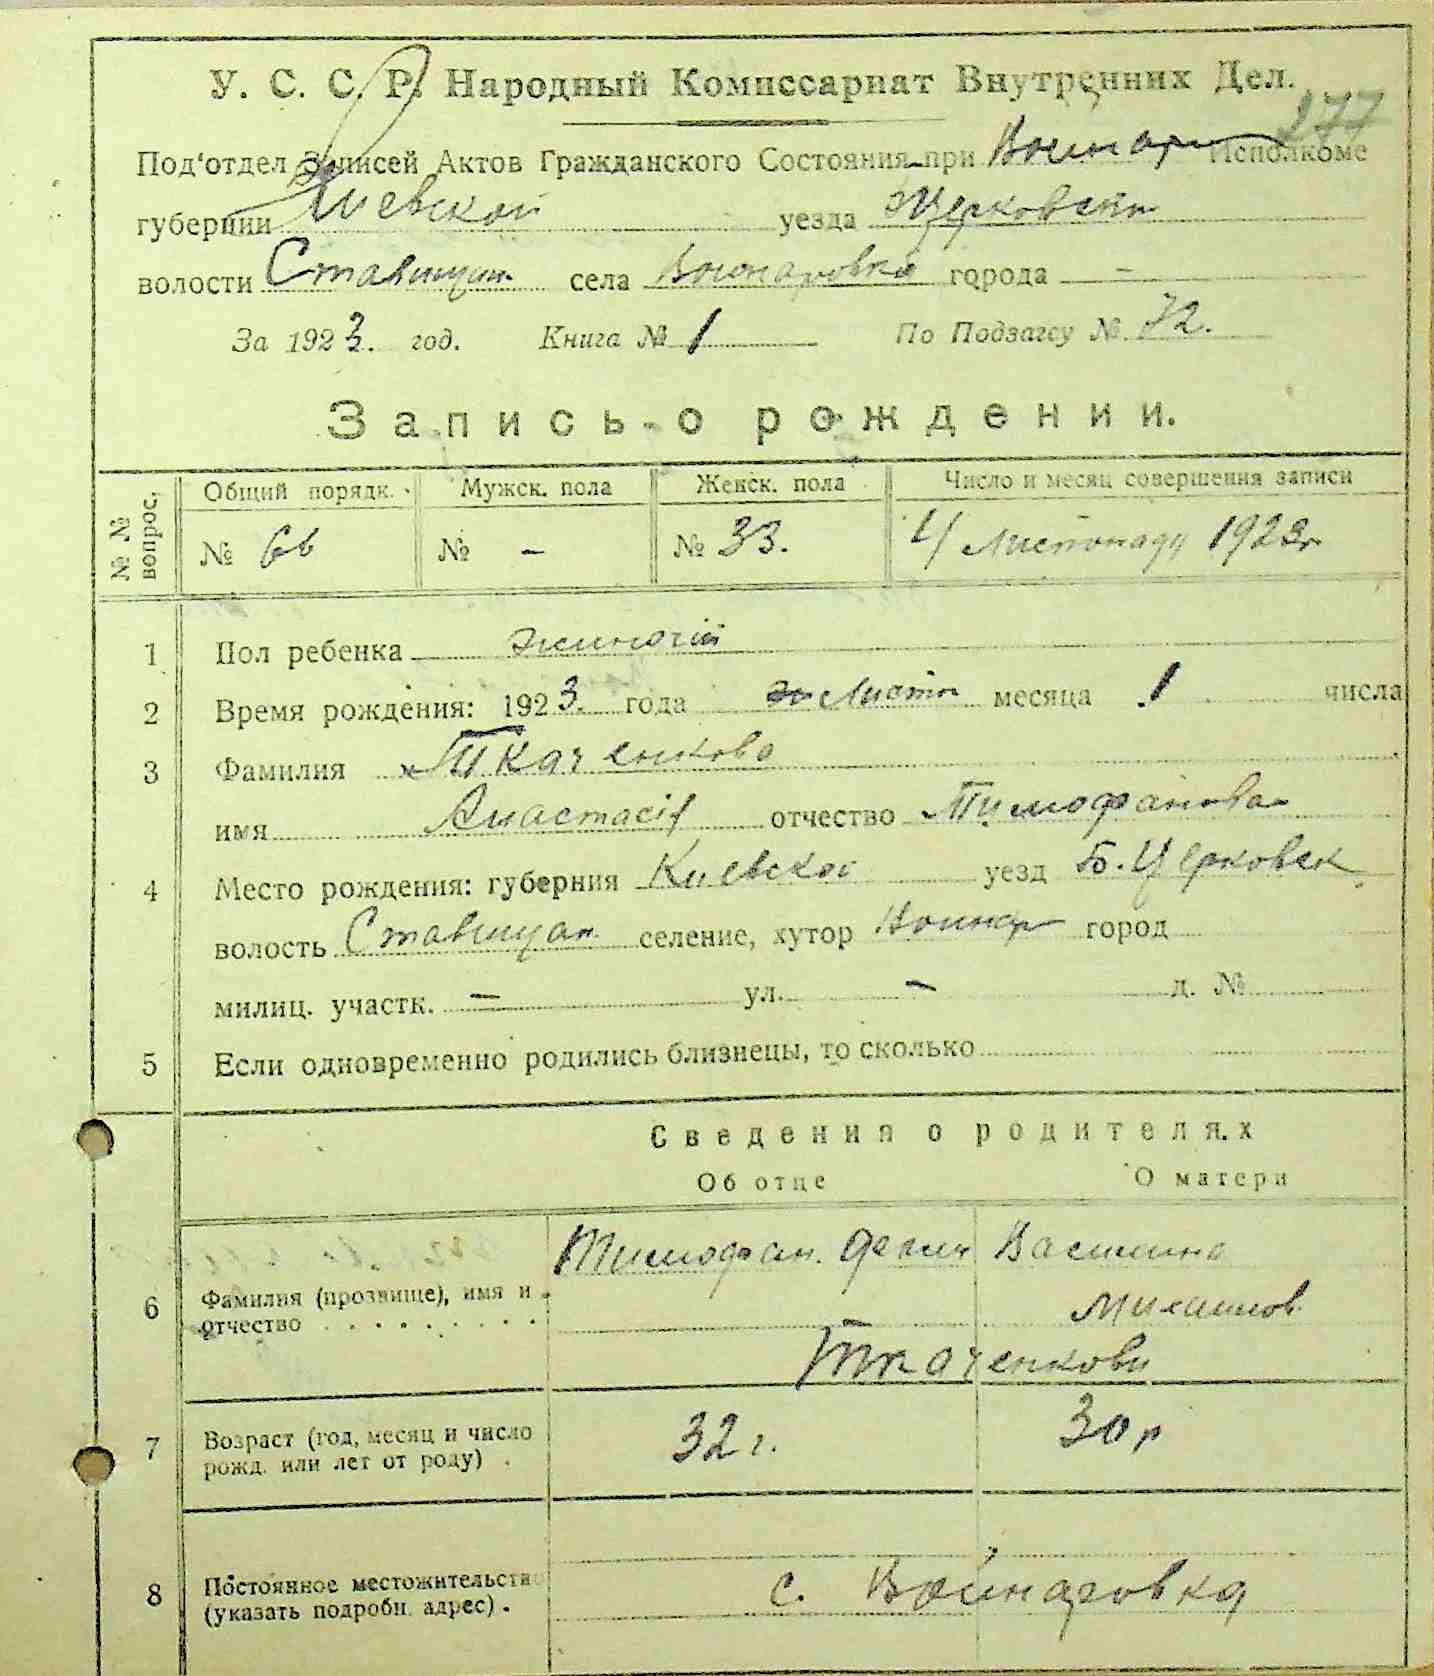 У. С. С. Р. Народный Комиссариат Внутренних Дел.
277
Под'отдел Записей Актов Гражданского Состояния при Войнар Исполкоме
губернии Киевской уезда Церковськ
волости Ставищан села Войнаровка города —
За 1923. год. Книга № 1 По Подзагсу № 72.
Запись о рождении.
№ № вопрос. Общий порядк. Мужск. пола Женск. пола Число и месяц совершения записи
№ 66 № – № 33. 4 Листопаду 1923 г
1 Пол ребенка жиночий
2 Время рождения: 1923. года Листоп месяца 1 числа
3 Фамилия Ткаченкова
имя Анастасія отчество Тимофанова
4 Место рождения: губерния Киевской уезд Б. Церковськ
волость Ставищан селение, хутор Войнар город
милиц. участк. — ул. — д. №
5 Если одновременно родились близнецы, то сколько
Сведения о родителях
Об отце О матери
6 Фамилия (прозвище), имя и отчество . . . . . . . . . Тимофан. Василина
Михайлов.
Ткаченкови
7 Возраст (год, месяц и число рожд. или лет от роду) . 32 г. 30 р
8 Постоянное местожительство (указать подробн. адрес) . с. Войнаровка